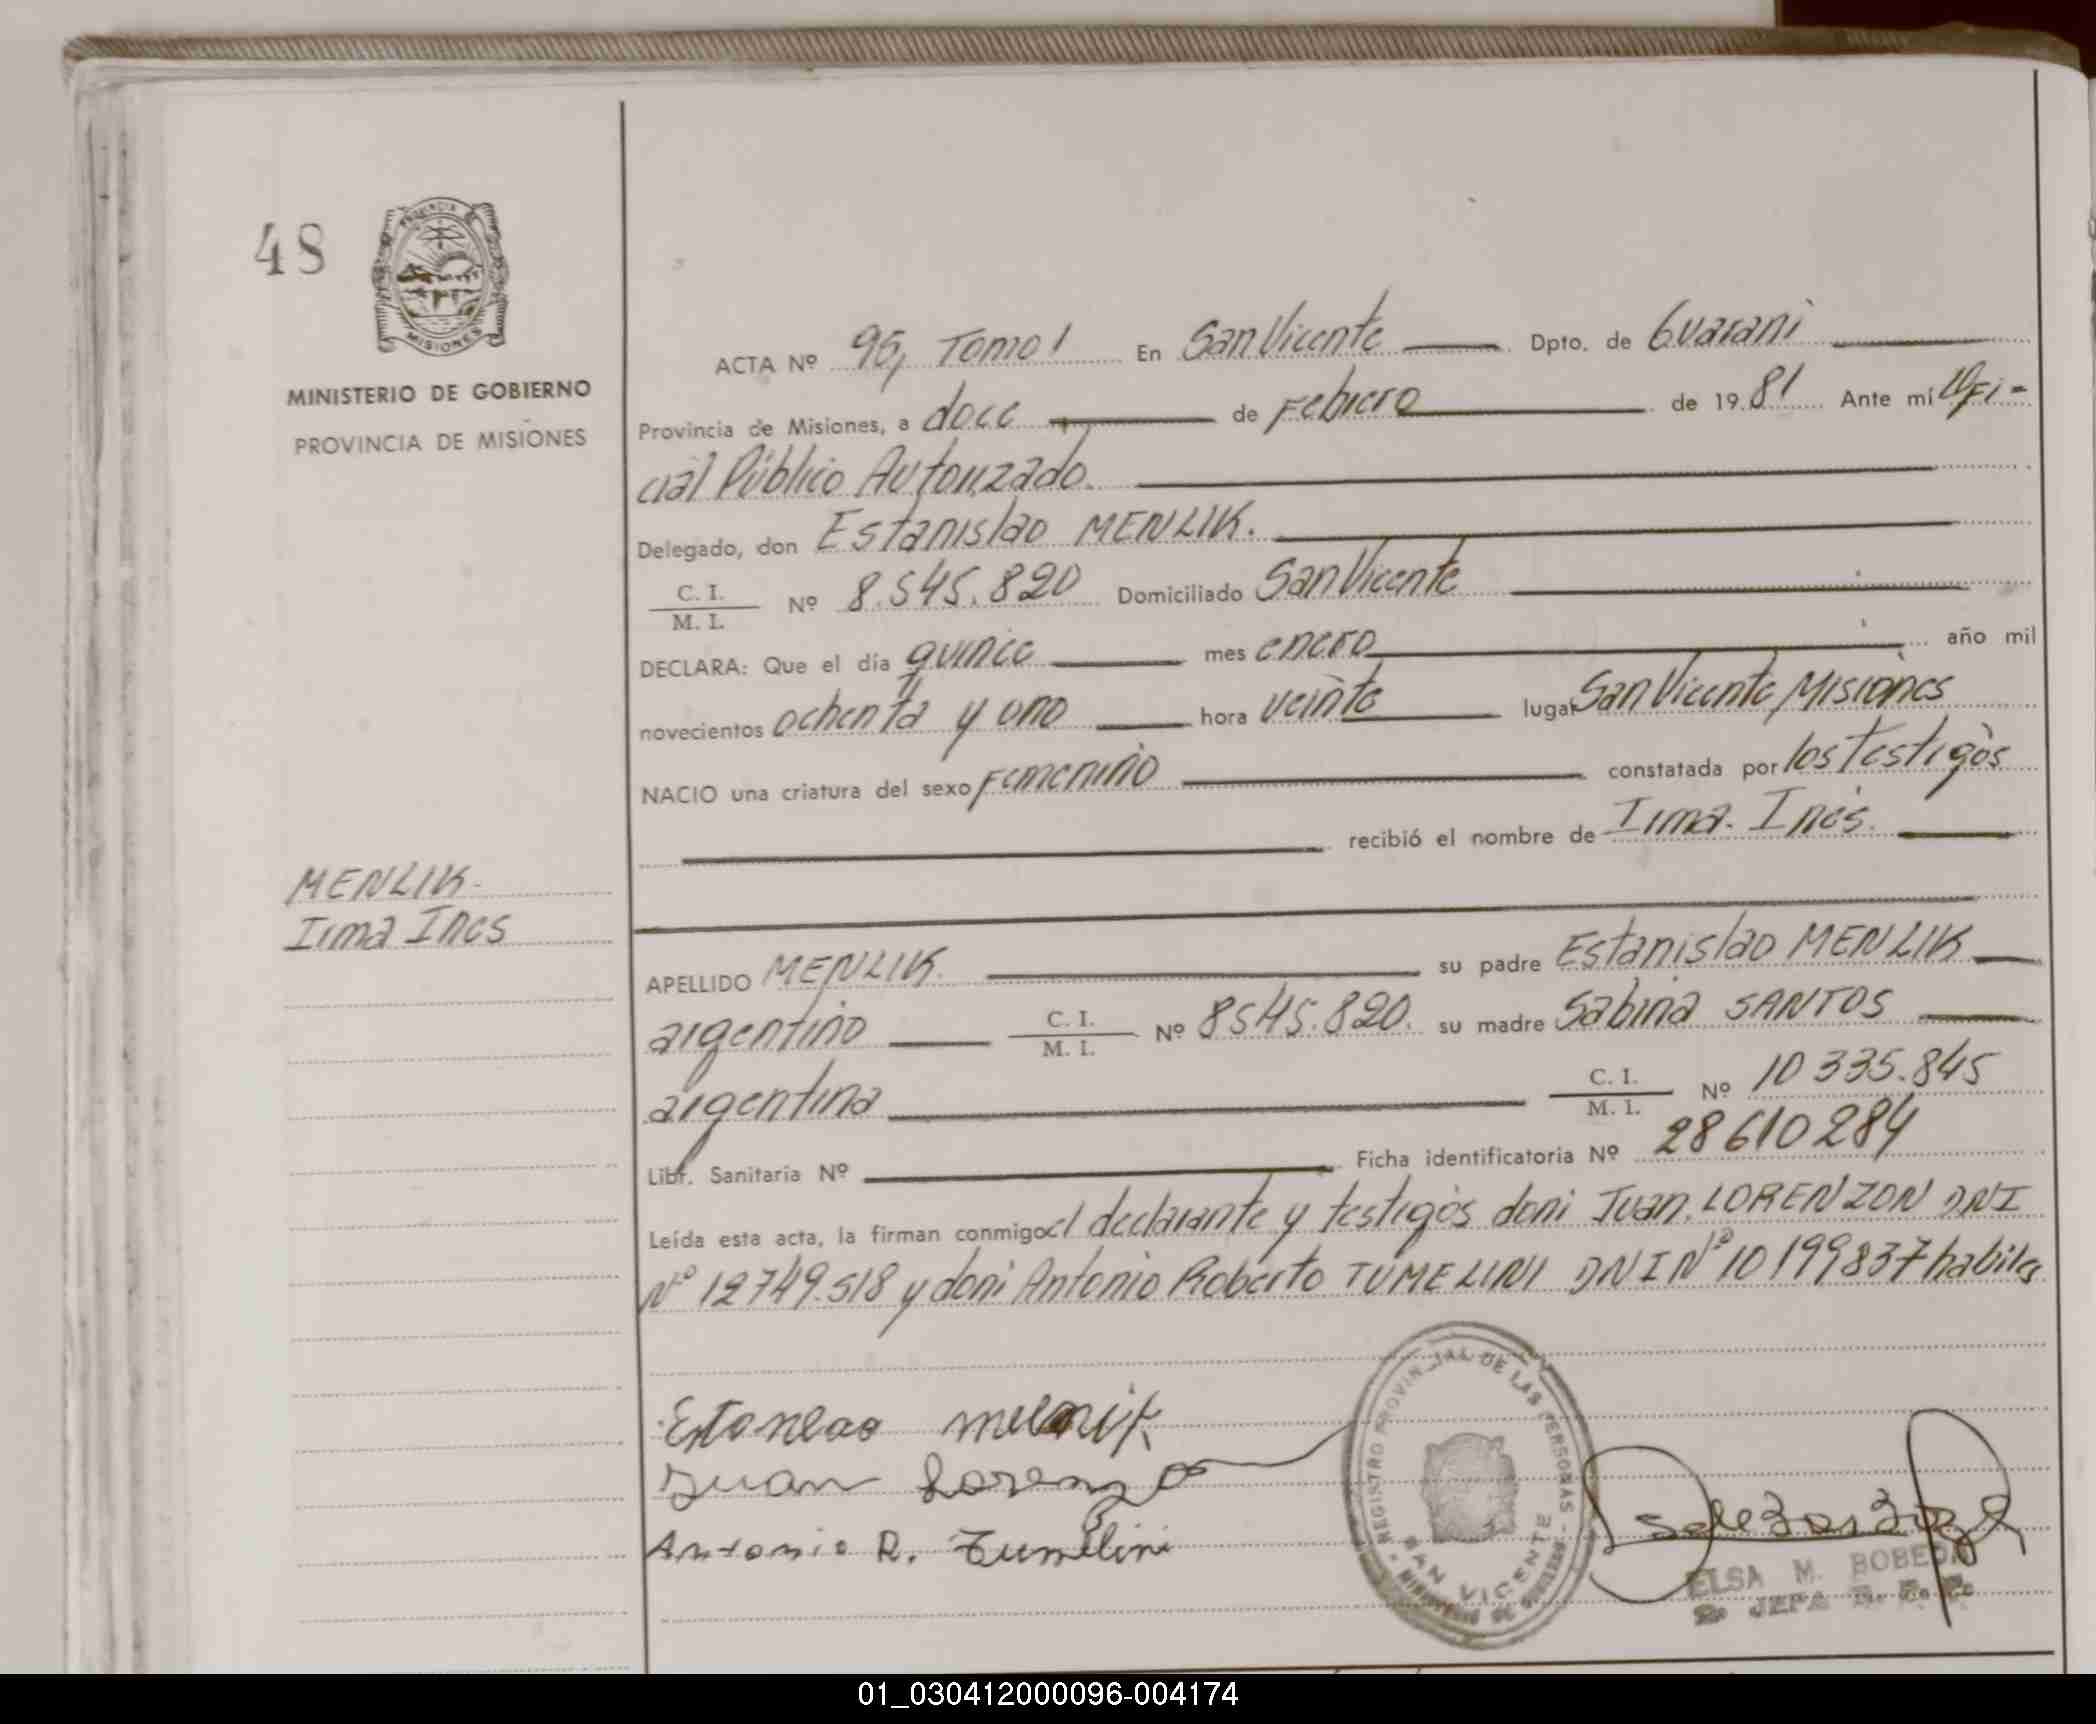 48
PROVINCIA DE
MISIONES
MINISTERIO DE GOBIERNO
PROVINCIA DE MISIONES
ACTA Nº 95, Tomo I En San Vicente Dpto. de Guarani
Provincia de Misiones, a doce de Febrero de 1981 Ante mí Ofi-
cial Público Autorizado.
Delegado, don Estanislao MENLIK.
C. I.
M. I. Nº 8.545.820 Domiciliado San Vicente
DECLARA: Que el día quince mes enero año mil
novecientos ochenta y uno hora veinte lugar San Vicente, Misiones
NACIO una criatura del sexo Femenino constatada por los testigos
recibió el nombre de Irma. Inés.
MENLIK.
Irma Ines
APELLIDO MENLIK. su padre Estanislao MENLIK
argentino C. I.
M. I. Nº 8545.820. su madre Sabina SANTOS
argentina C. I.
M. I. Nº 10 335.845
Libr. Sanitaria Nº Ficha identificatoria Nº 28610284
Leída esta acta, la firman conmigo el declarante y testigos don: Juan. LORENZON DNI
Nº 12749.518 y don: Antonio Roberto TUMELINI DNI Nº 10199837 habiles
Juan Lorenzo
Antonio R. Tumelini
REGISTRO PROVINCIAL DE LAS PERSONAS
SAN VICENTE
ELSA M. BOBEDA
JEFA
01_030412000096-004174